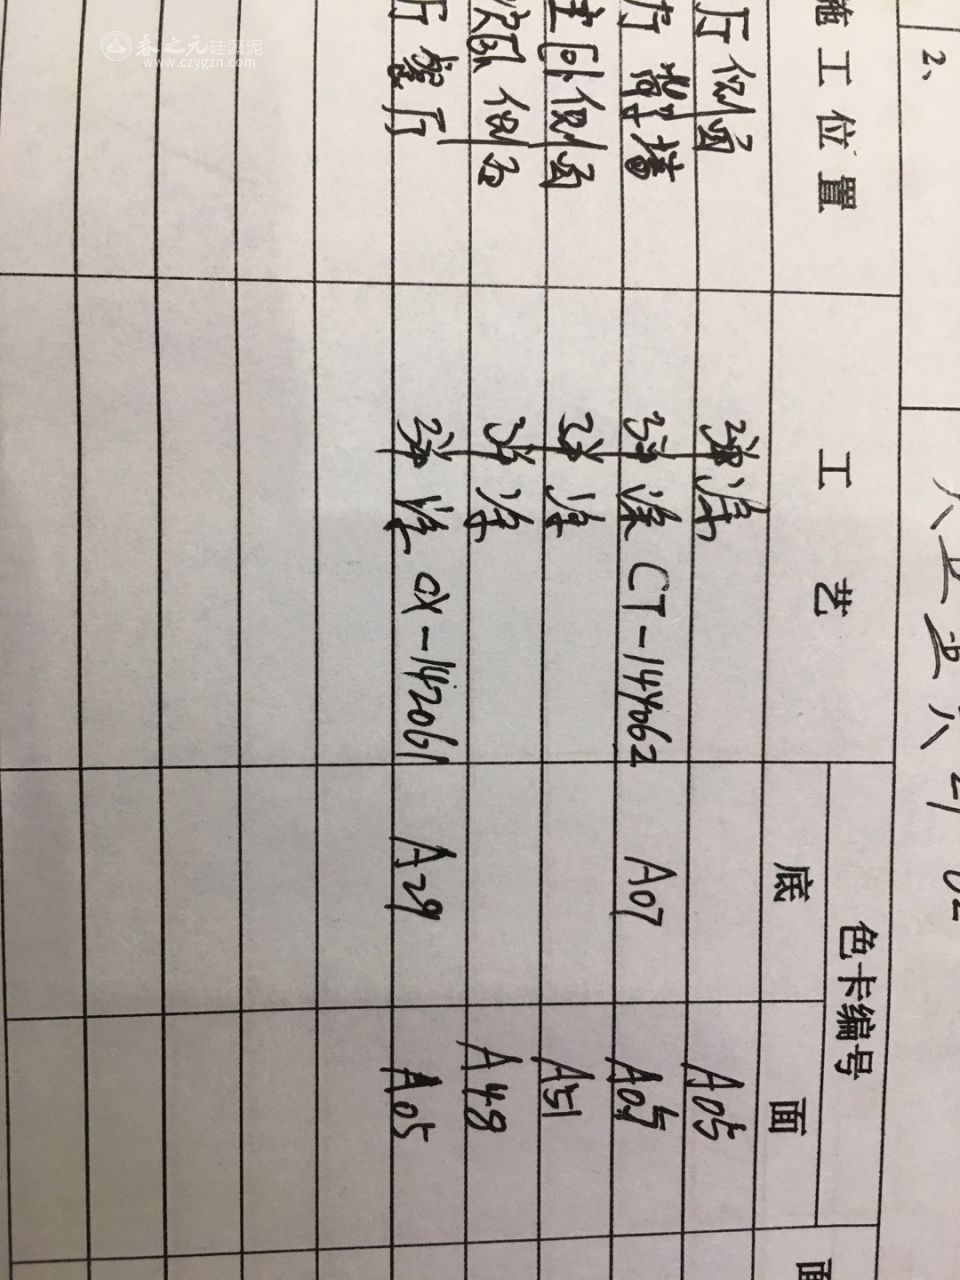 2、
施工位置 工艺 色卡编号
底 面 面
厅侧面 弹涂 A05
背墙 弹涂 CT-144062 A07 A05
主卧侧面 弹涂 A51
次卧侧面 弹涂 A48
餐厅 弹涂 OX-142061 A29 A05
春之元硅藻泥
www.czygzn.com